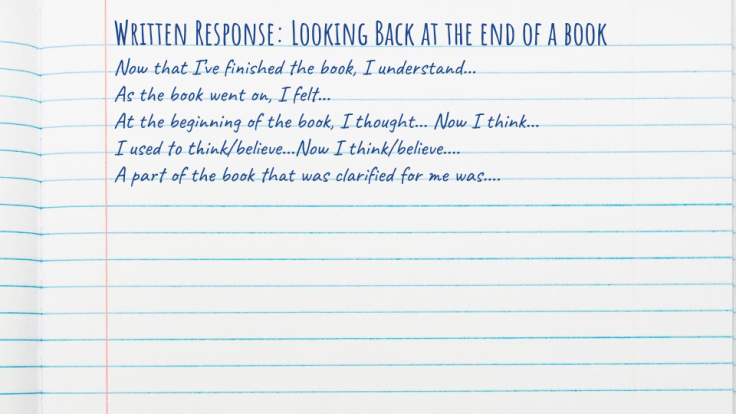 Written Response: Looking Back at the end of a book
Now that I've finished the book, I understand...
As the book went on, I felt...
At the beginning of the book, I thought... Now I think...
I used to think/believe...Now I think/believe....
A part of the book that was clarified for me was....